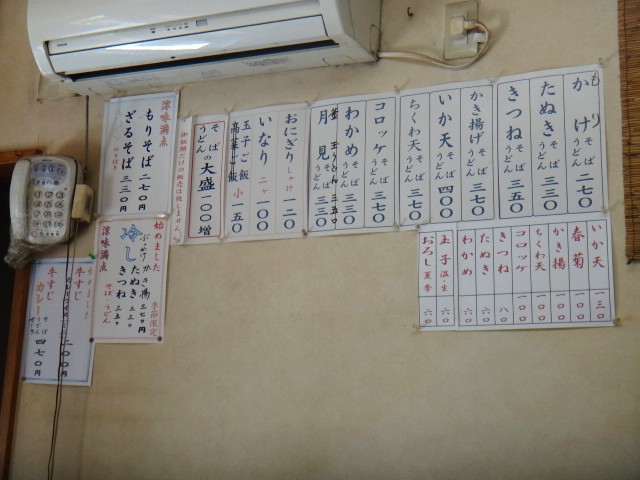 かけ そば うどん 二七〇
もり
たぬき そば うどん 三三〇
きつね そば うどん 三五〇
かき揚げ そば うどん 三七〇
いか天 そば うどん 四〇〇
ちくわ天 そば うどん 三七〇
コロッケ そば うどん 三七〇
わかめ そば うどん 三三〇
月見 そば うどん 三三〇
おにぎり しゃけ 一二〇
いなり 二ヶ 一〇〇
玉子ご飯
高菜ご飯 小 一五〇
そば うどん の大盛 一〇〇増
御飯類だけの販売は致しません。
涼味満点
もりそば 二七〇円
ざるそば 三三〇円
いか天 一三〇
春菊 一〇〇
かき揚 一〇〇
ちくわ天 一〇〇
コロッケ 一〇〇
きつね 八〇
たぬき 六〇
わかめ 六〇
玉子 温生 六〇
おろし 夏季 六〇
始めました
冷し
ぶっかけ かき揚 三七〇円
たぬき 三三〇
きつね 三五〇
季節限定
涼味満点 そば うどん
牛すじ
牛すじ カレー そば うどん 四七〇円